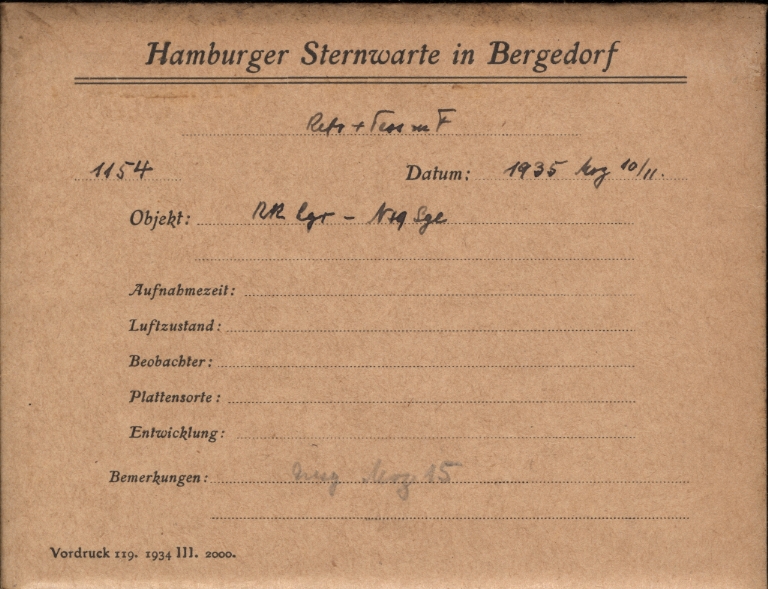 Hamburger Sternwarte in Bergedorf
Refr + Tess m F
1154 Datum: 1935 Aug 10/11.
Objekt: RR Lyr -
Aufnahmezeit:
Luftzustand:
Beobachter:
Plattensorte:
Entwicklung:
Bemerkungen: 15
Vordruck 119. 1934 III. 2000.